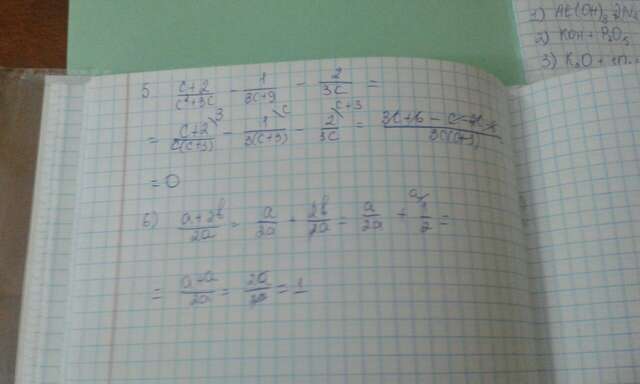 1) Al(OH)3
2) KOH + P2O5
3) K2O +
5. (c+2)/(c²+3c) - 1/(3c+9) - 2/(3c) =
= (c+2)\3/(c(c+3)) - 1\c/(3(c+3)) - 2\c+3/(3c) = (3c+6-c-2c-6)/(3c(c+3))
= 0
6) (a+2b)/(2a) = a/(2a) + 2b/(2a) = a/(2a) + a/1/2 =
= (a+a)/(2a) = 2a/2a = 1